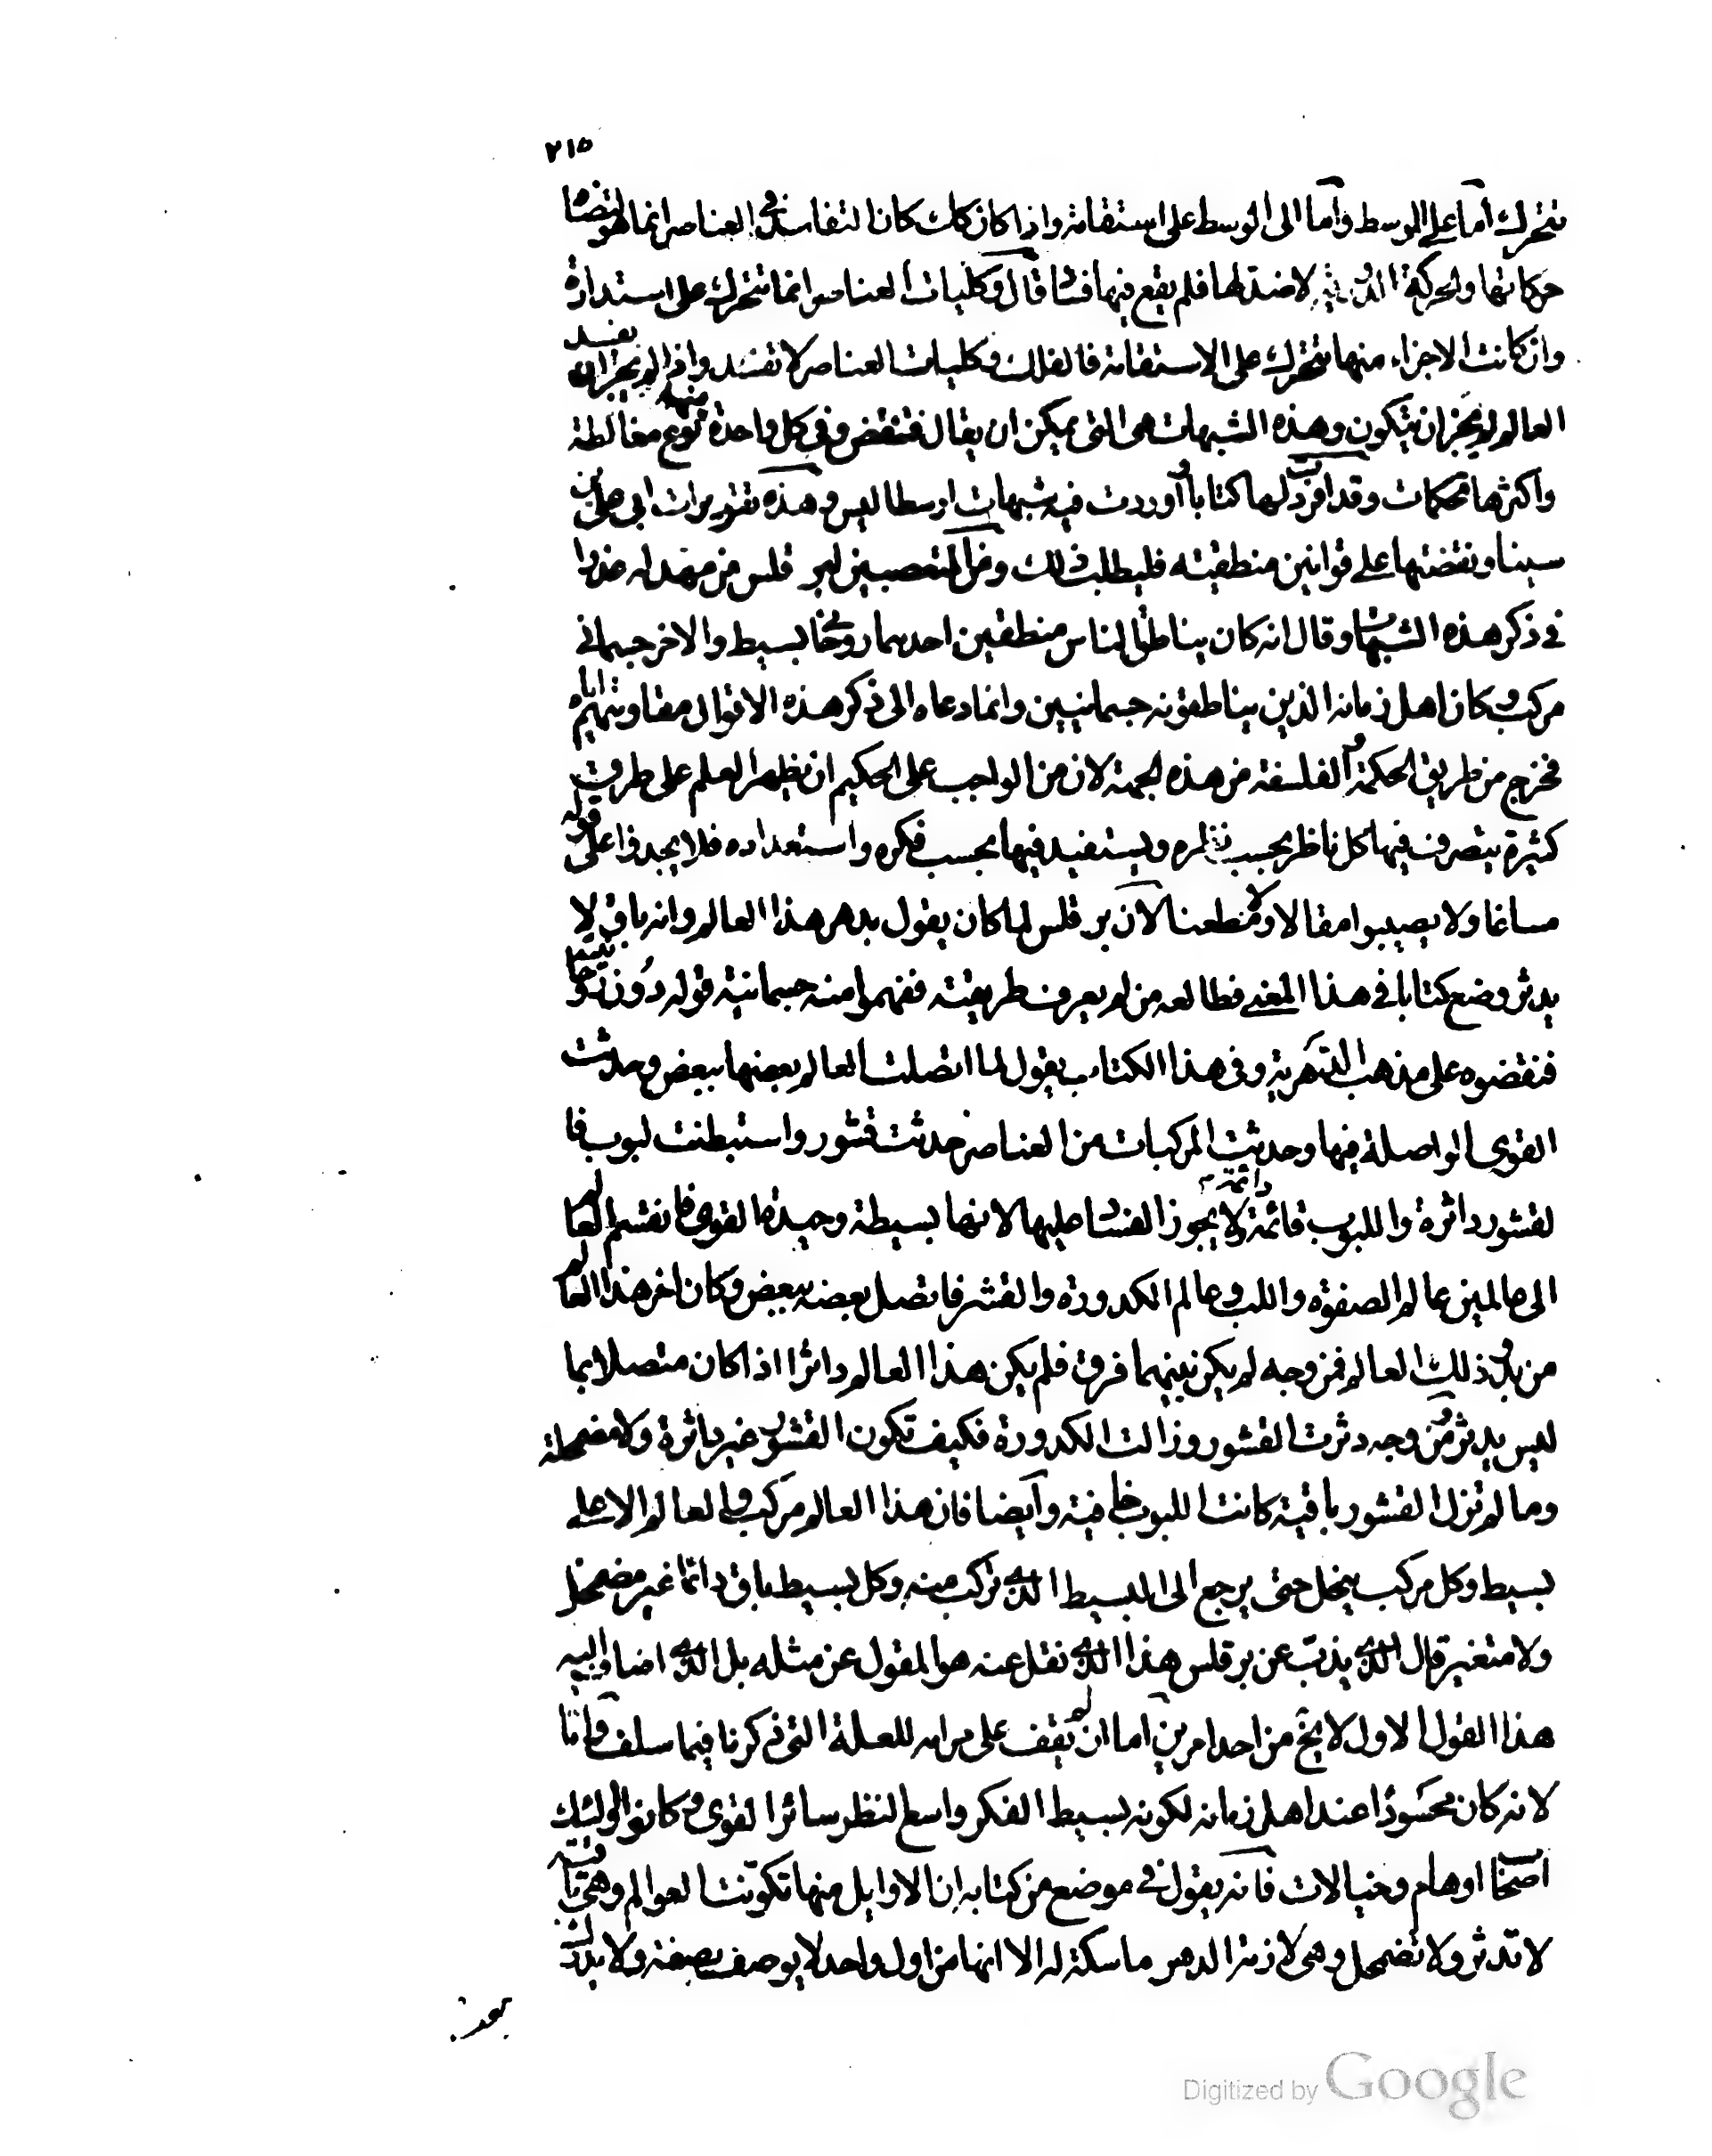 ٢١٥
تتحرك اما على الوسط واما الى الوسط على استقامة واذا كان كذلك كان التفاسد في العناصر انما هو لتضاد
حركاتها والحركة الدورية لا ضد لها فلم يقع فيها فساد قال وكليات العناصر انما تتحرك على استدارة
وان كانت الاجزاء منها تتحرك على الاستقامة فالفلك وكليات العناصر لا تفسد واذا لم يجز ان يفسد
العالم لم يجز ان يتكون وهذه الشبهات هى التى يمكن ان يقال فتنقض وفى كل واحدة منها نوع مغالطة
واكثرها تحكمات وقد افردت لها كتابا واوردت فيه شبهات ارسطاليس وهذه تقريرات ابى على بن
سينا ونقضتها على قوانين منطقية فليطلب ذلك ومن المتعصبين لبرقلس من مهد له عذرا
في ذكر هذه الشبهات وقال انه كان يناطق الناس منطقين احدهما روحانى بسيط والاخر جسمانى
مركب وكان اهل زمانه الذين يناطقونه جسمانيين وانما دعاه الى ذكر هذه الاقوال مقاومتهم اياه
فخرج من طريق الحكمة والفلسفة من هذه الجهة لان من الواجب على الحكيم ان يظهر العلم على طرق
كثيرة يتصرف فيها كل ناظر بحسب نظره ويستفيد فيها بحسب فكره واستعداده فلا يجدوا على قوله
مساغا ولا يصيبوا مقالا ولا مطعنا لان برقلس لما كان يقول بدهر هذا العالم وانه باق لا
يدثر وضع كتابا في هذا المعنى فطالعه من لم يعرف طريقته ففهموا منه جسمانية قوله دون روحانيته
فنقضوه على مذهب الدهرية وفى هذا الكتاب يقول لما اتصلت العالم بعضها ببعض وحدثت
القوى الواصلة فيها وحدثت المركبات من العناصر حدثت قشور واستبطنت لبوب فا
لقشور داثرة واللبوب قائمة دائمة ولا يجوز الفساد عليها لانها بسيطة وحيدة القوى فانقسم العالم
الى عالمين عالم الصفوة واللب وعالم الكدورة والقشر فاتصل بعضه ببعض وكان اخر هذا العالم
من بدو ذلك العالم فمن وجه لم يكن بينهما فرق فلم يكن هذا العالم داثرا اذا كان متصلا بما
ليس يدثر ومن وجه دثرت القشور وزالت الكدورة فكيف تكون القشور غير داثرة ولا مضمحلة
وما لم تزل القشور باقية كانت اللبوب خافية وايضا فان هذا العالم مركب والعالم الاعلى
بسيط وكل مركب ينحل حتى يرجع الى البسيط الذى تركب منه وكل بسيط باق دائما غير مضمحل
ولا متغير قال الذى يذب عن برقلس هذا الذى نقل عنه هو المقول عن مثله بل الذى اضاف اليه
هذا القول الاول لا يخ من احد امرين اما ان لم يقف على مرامه للعلة التى ذكرنا فيما سلف واما
لانه كان محسودا عند اهل زمانه لكونه بسيط الفكر واسع النظر سائر القوى وكانوا اولئك
اصحاب اوهام وخيالات فانه يقول في موضع من كتابه ان الاوايل منها تكونت العوالم وهى باقية
لا تدثر ولا تضمحل وهى لازمة الدهر ماسكة له الا انها من اول واحد لا يوصف بصفة ولا يدرك